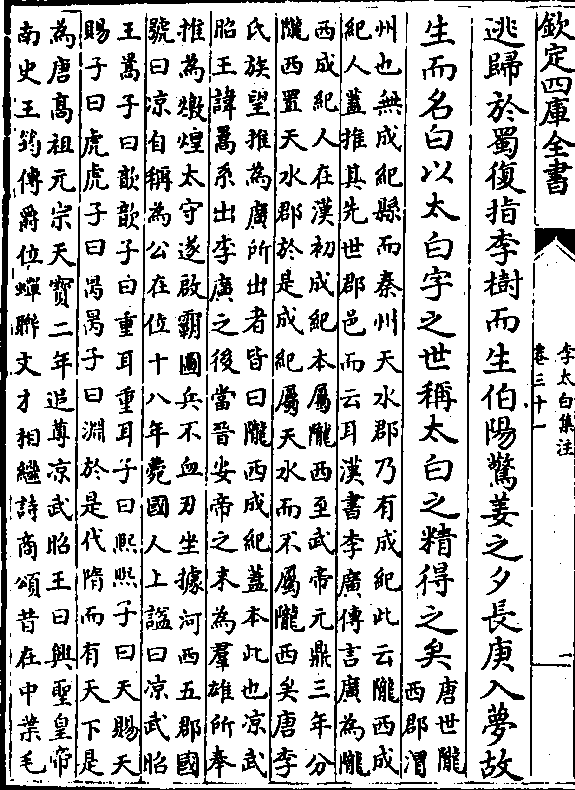 欽定四庫全書
李太白集注
卷三十一
逃歸於蜀復指李樹而生伯陽驚姜之夕長庚入夢故
生而名白以太白字之世稱太白之精得之矣
唐世隴
西郡渭
州也無成紀縣而秦州天水郡乃有成紀此云隴西成
紀人蓋推其先世郡邑而云耳漢書李廣傳言廣為隴
西成紀人在漢初成紀本屬隴西至武帝元鼎三年分
隴西置天水郡於是成紀屬天水而不屬隴西矣唐李
氏族望推為廣所出者皆曰隴西成紀蓋本此也涼武
昭王諱暠系出李廣之後當晉安帝之末為羣雄所奉
推為燉煌太守遂啟霸圖兵不血刃坐據河西五郡國
號曰涼自稱為公在位十八年薨國人上諡曰涼武昭
王暠子曰歆歆子曰重耳重耳子曰熙熙子曰天賜天
賜子曰虎虎子曰昺昺子曰淵於是代隋而有天下是
為唐髙祖元宗天寳二年追尊涼武昭王曰興聖皇帝
南史王筠傳爵位蟬聯文才相繼詩商頌昔在中葉毛